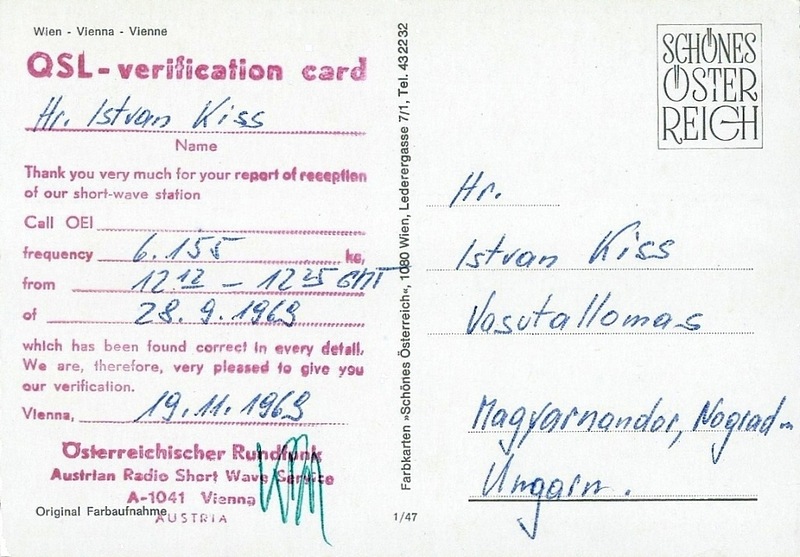 Wien - Vienna - Vienne
QSL-verification card
Hr. Istvan Kiss
Name
Thank you very much for your report of reception
of our short-wave station
Call OEI
frequency 6.155 kc,
from 12 12 - 12 25 GMT
of 28. 9. 1969
which has been found correct in every detail.
We are, therefore, very pleased to give you
our verification.
Vienna, 19. 11. 1969
Österreichischer Rundfunk
Austrian Radio Short Wave Service
A-1041 Vienna
Original Farbaufnahme
AUSTRIA
Farbkarten »Schönes Österreich«, 1080 Wien, Lederergasse 7/1, Tel. 432232
1/47
SCHÖNES
ÖSTER
REICH
Hr.
Istvan Kiss
Vasutallomas
Magyarnandor, Nograd m
Ungarn.